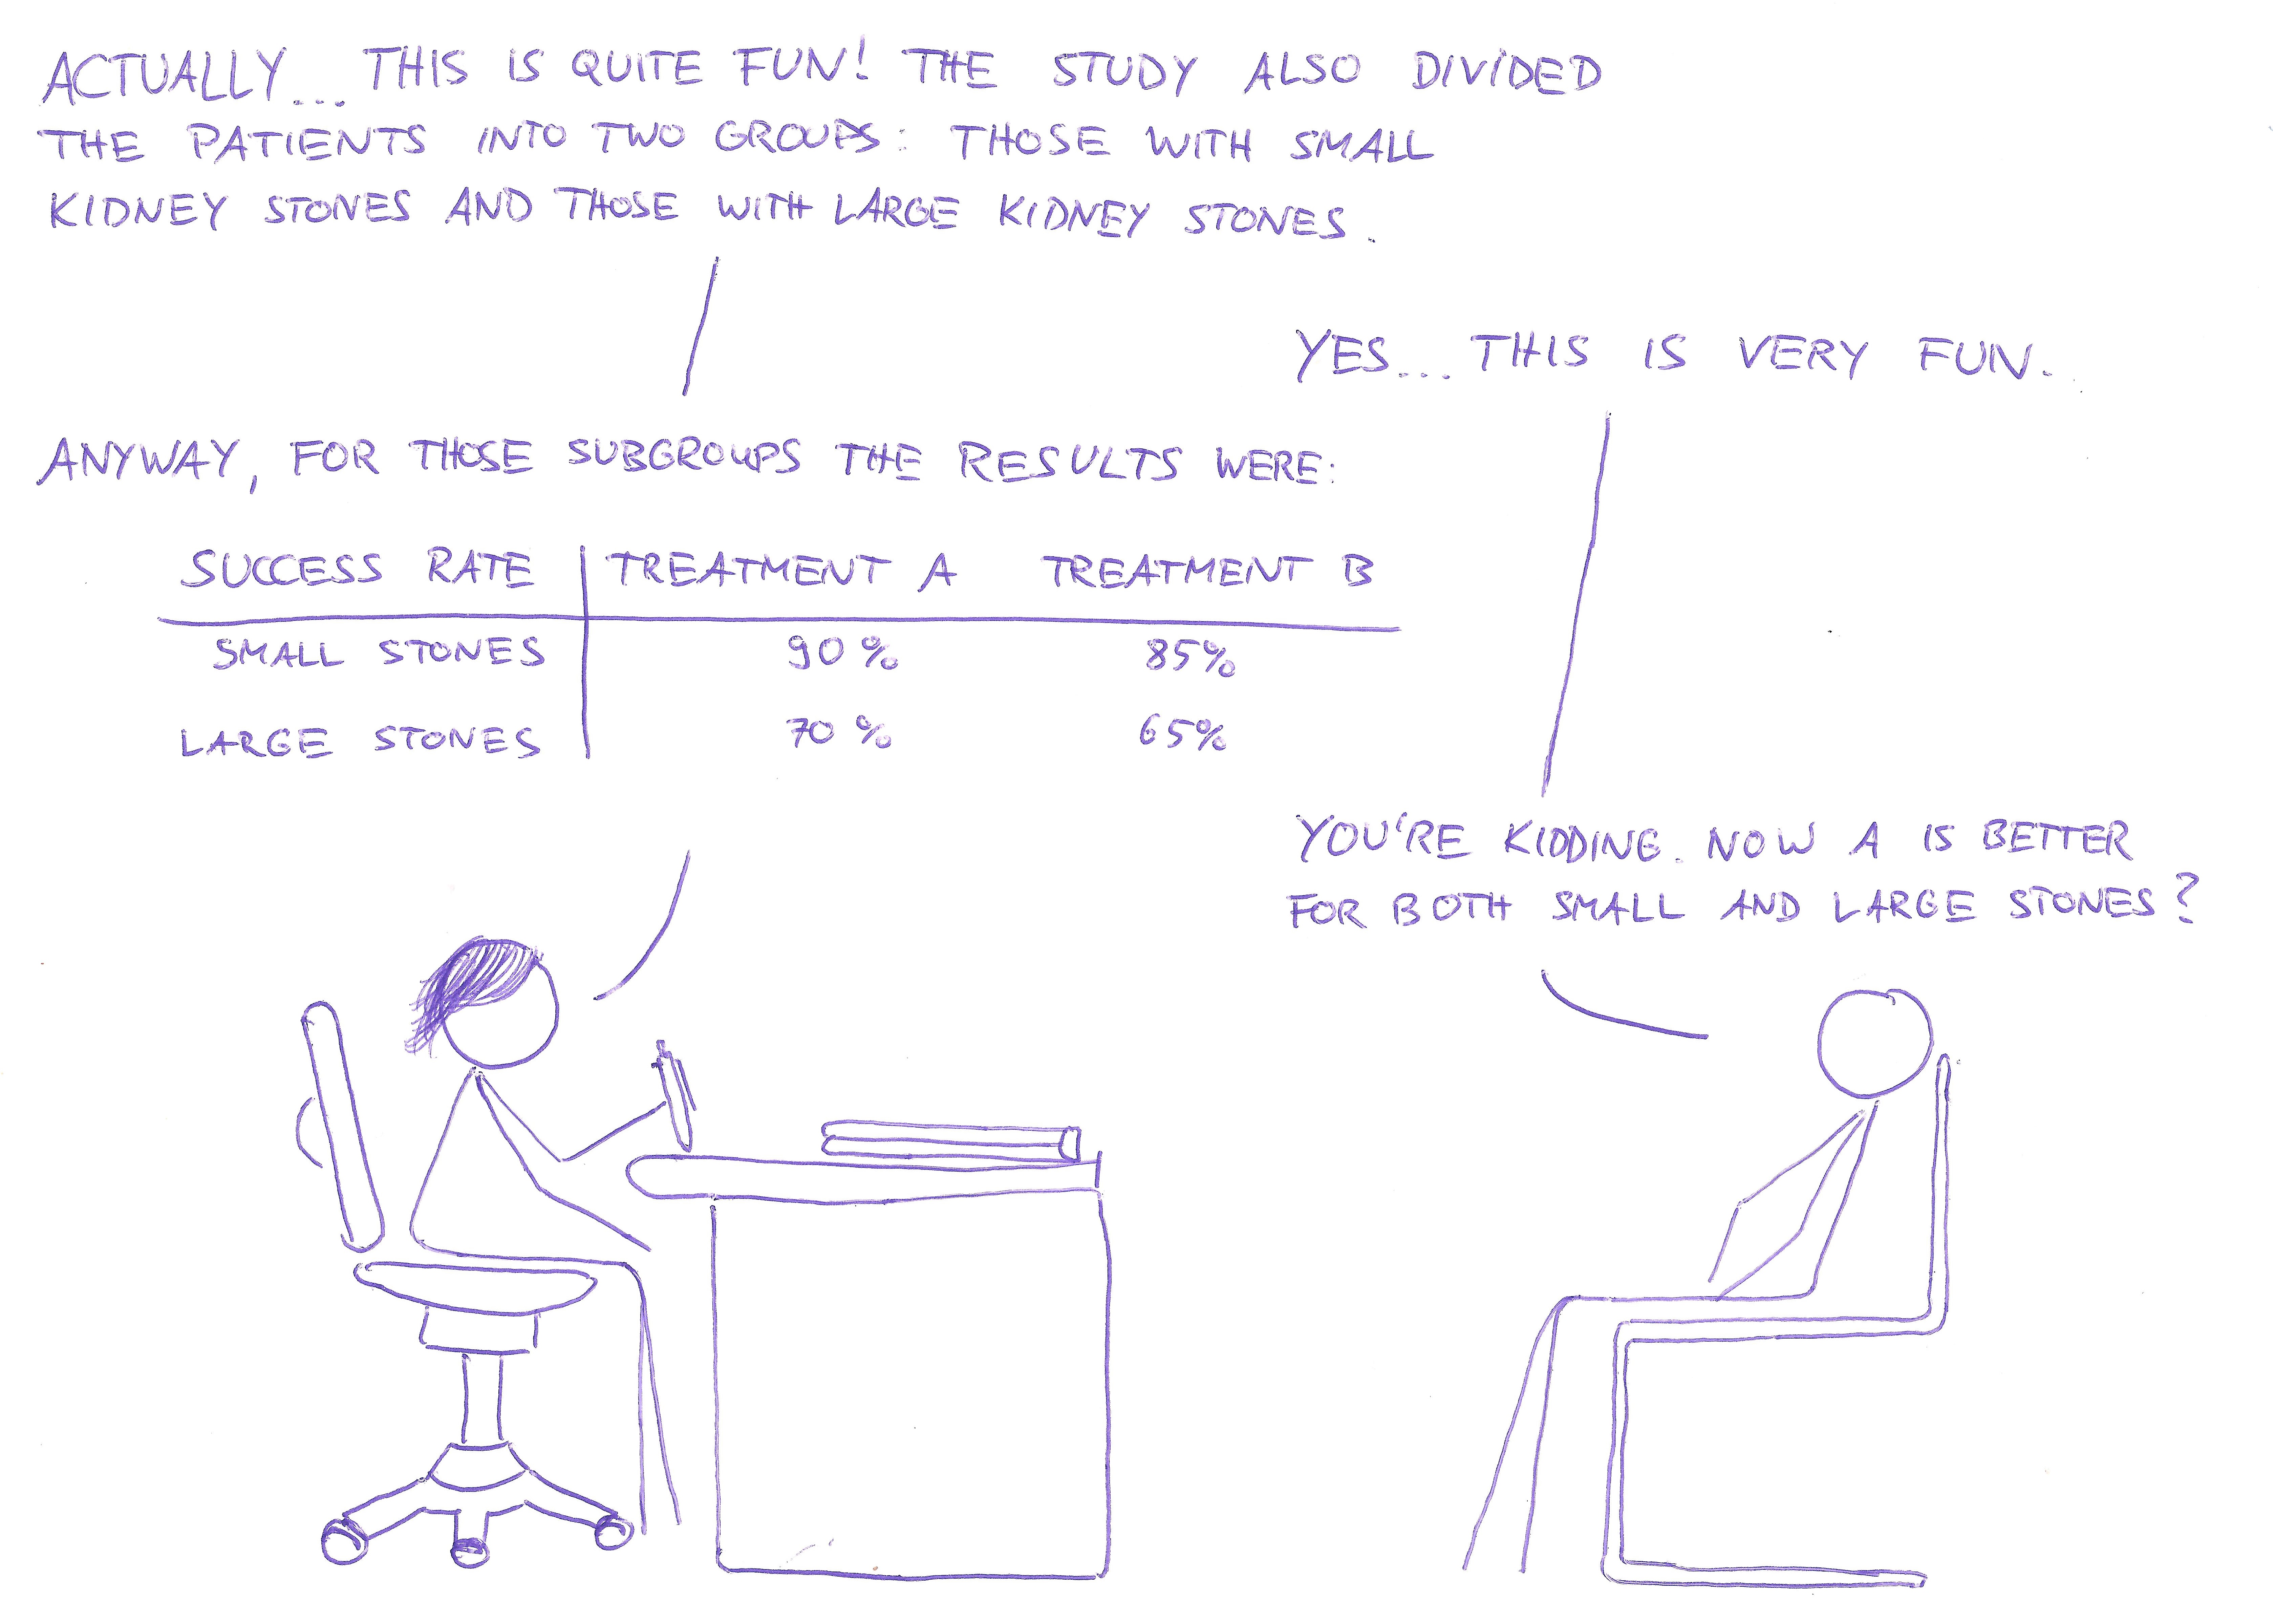 ACTUALLY... THIS IS QUITE FUN! THE STUDY ALSO DIVIDED
THE PATIENTS INTO TWO GROUPS: THOSE WITH SMALL
KIDNEY STONES AND THOSE WITH LARGE KIDNEY STONES.
YES... THIS IS VERY FUN.
ANYWAY, FOR THOSE SUBGROUPS THE RESULTS WERE:
SUCCESS RATE TREATMENT A TREATMENT B
SMALL STONES 90% 85%
LARGE STONES 70% 65%
YOU'RE KIDDING. NOW A IS BETTER
FOR BOTH SMALL AND LARGE STONES?